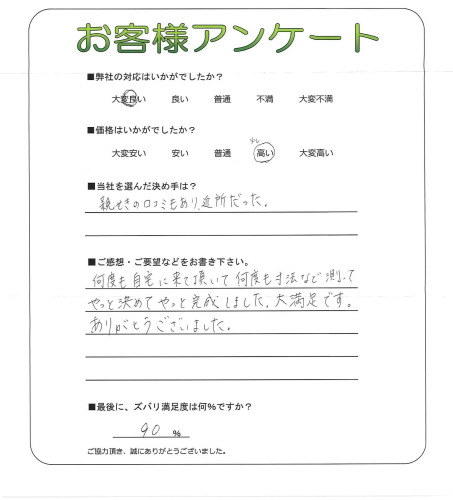 お客様アンケート
■弊社の対応はいかがでしたか?
大変良い 良い 普通 不満 大変不満
■価格はいかがでしたか?
少し
大変安い 安い 普通 高い 大変高い
■当社を選んだ決め手は?
親せきの口コミもあり、近所だった。
■ご感想・ご要望などをお書き下さい。
何度も自宅に来て頂いて 何度も寸法など測って
やっと決めてやっと完成しました。大満足です。
ありがとうございました。
■最後に、ズバリ満足度は何%ですか?
90 %
ご協力頂き、誠にありがとうございました。